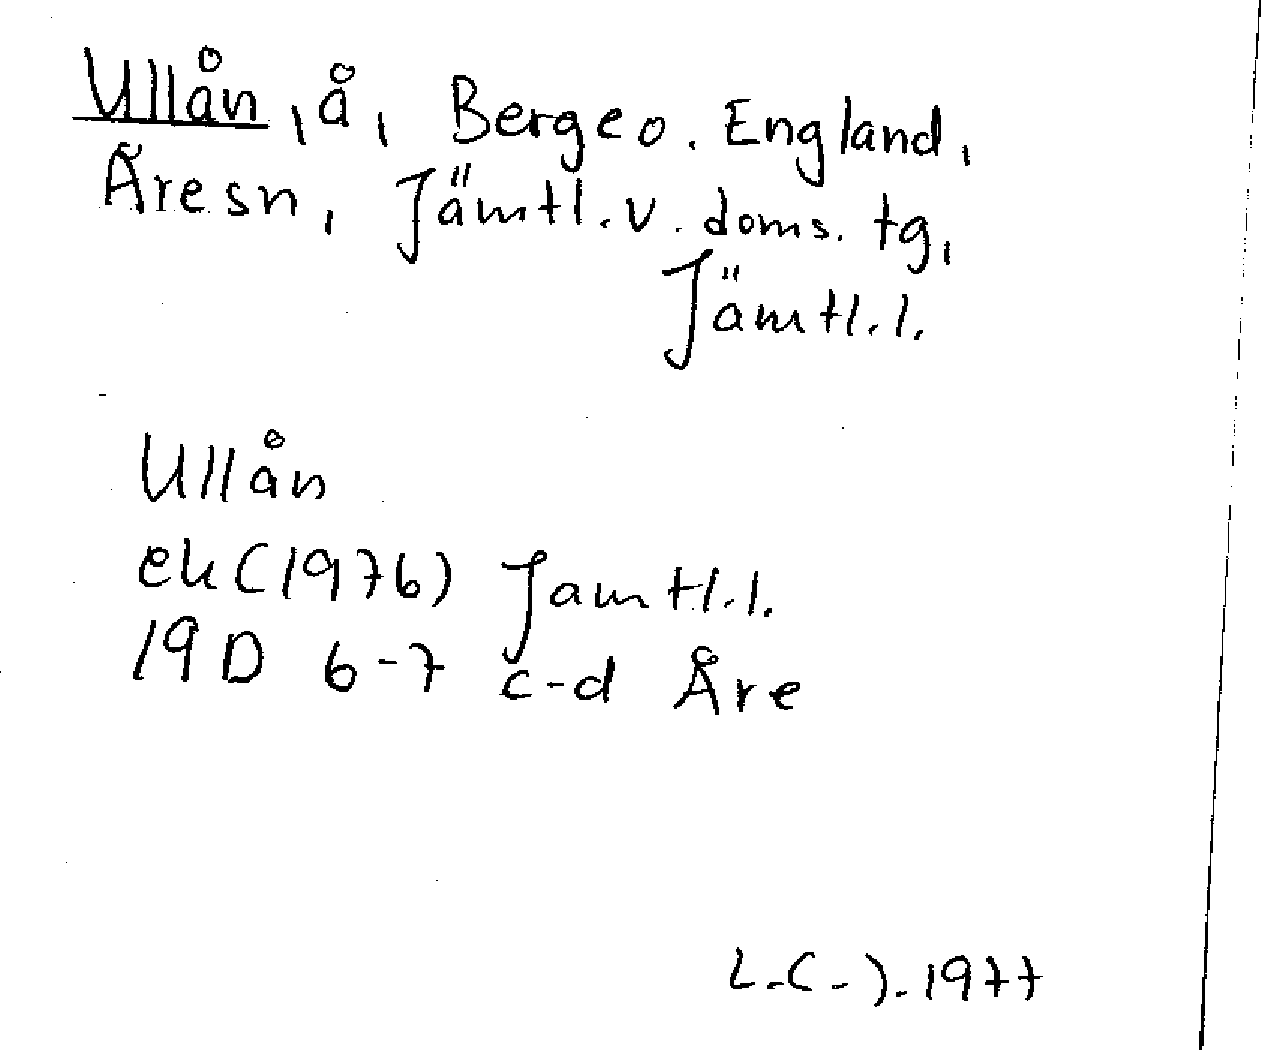 Ullån, å, Berge o. England,
Åre sn, Jämtl. v. doms. tg,
Jämtl. l.
Ullån
ek (1976) Jämtl. l.
19D 6-7 c-d Åre
L-C-J. 1977